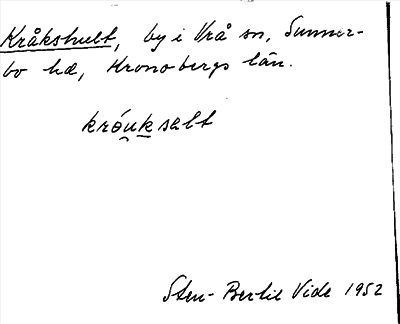 Kråkshult, by i Vrå sn, Sunner-
bo hd, Kronobergs län.
króuksalt
Sten-Bertil Vide 1952